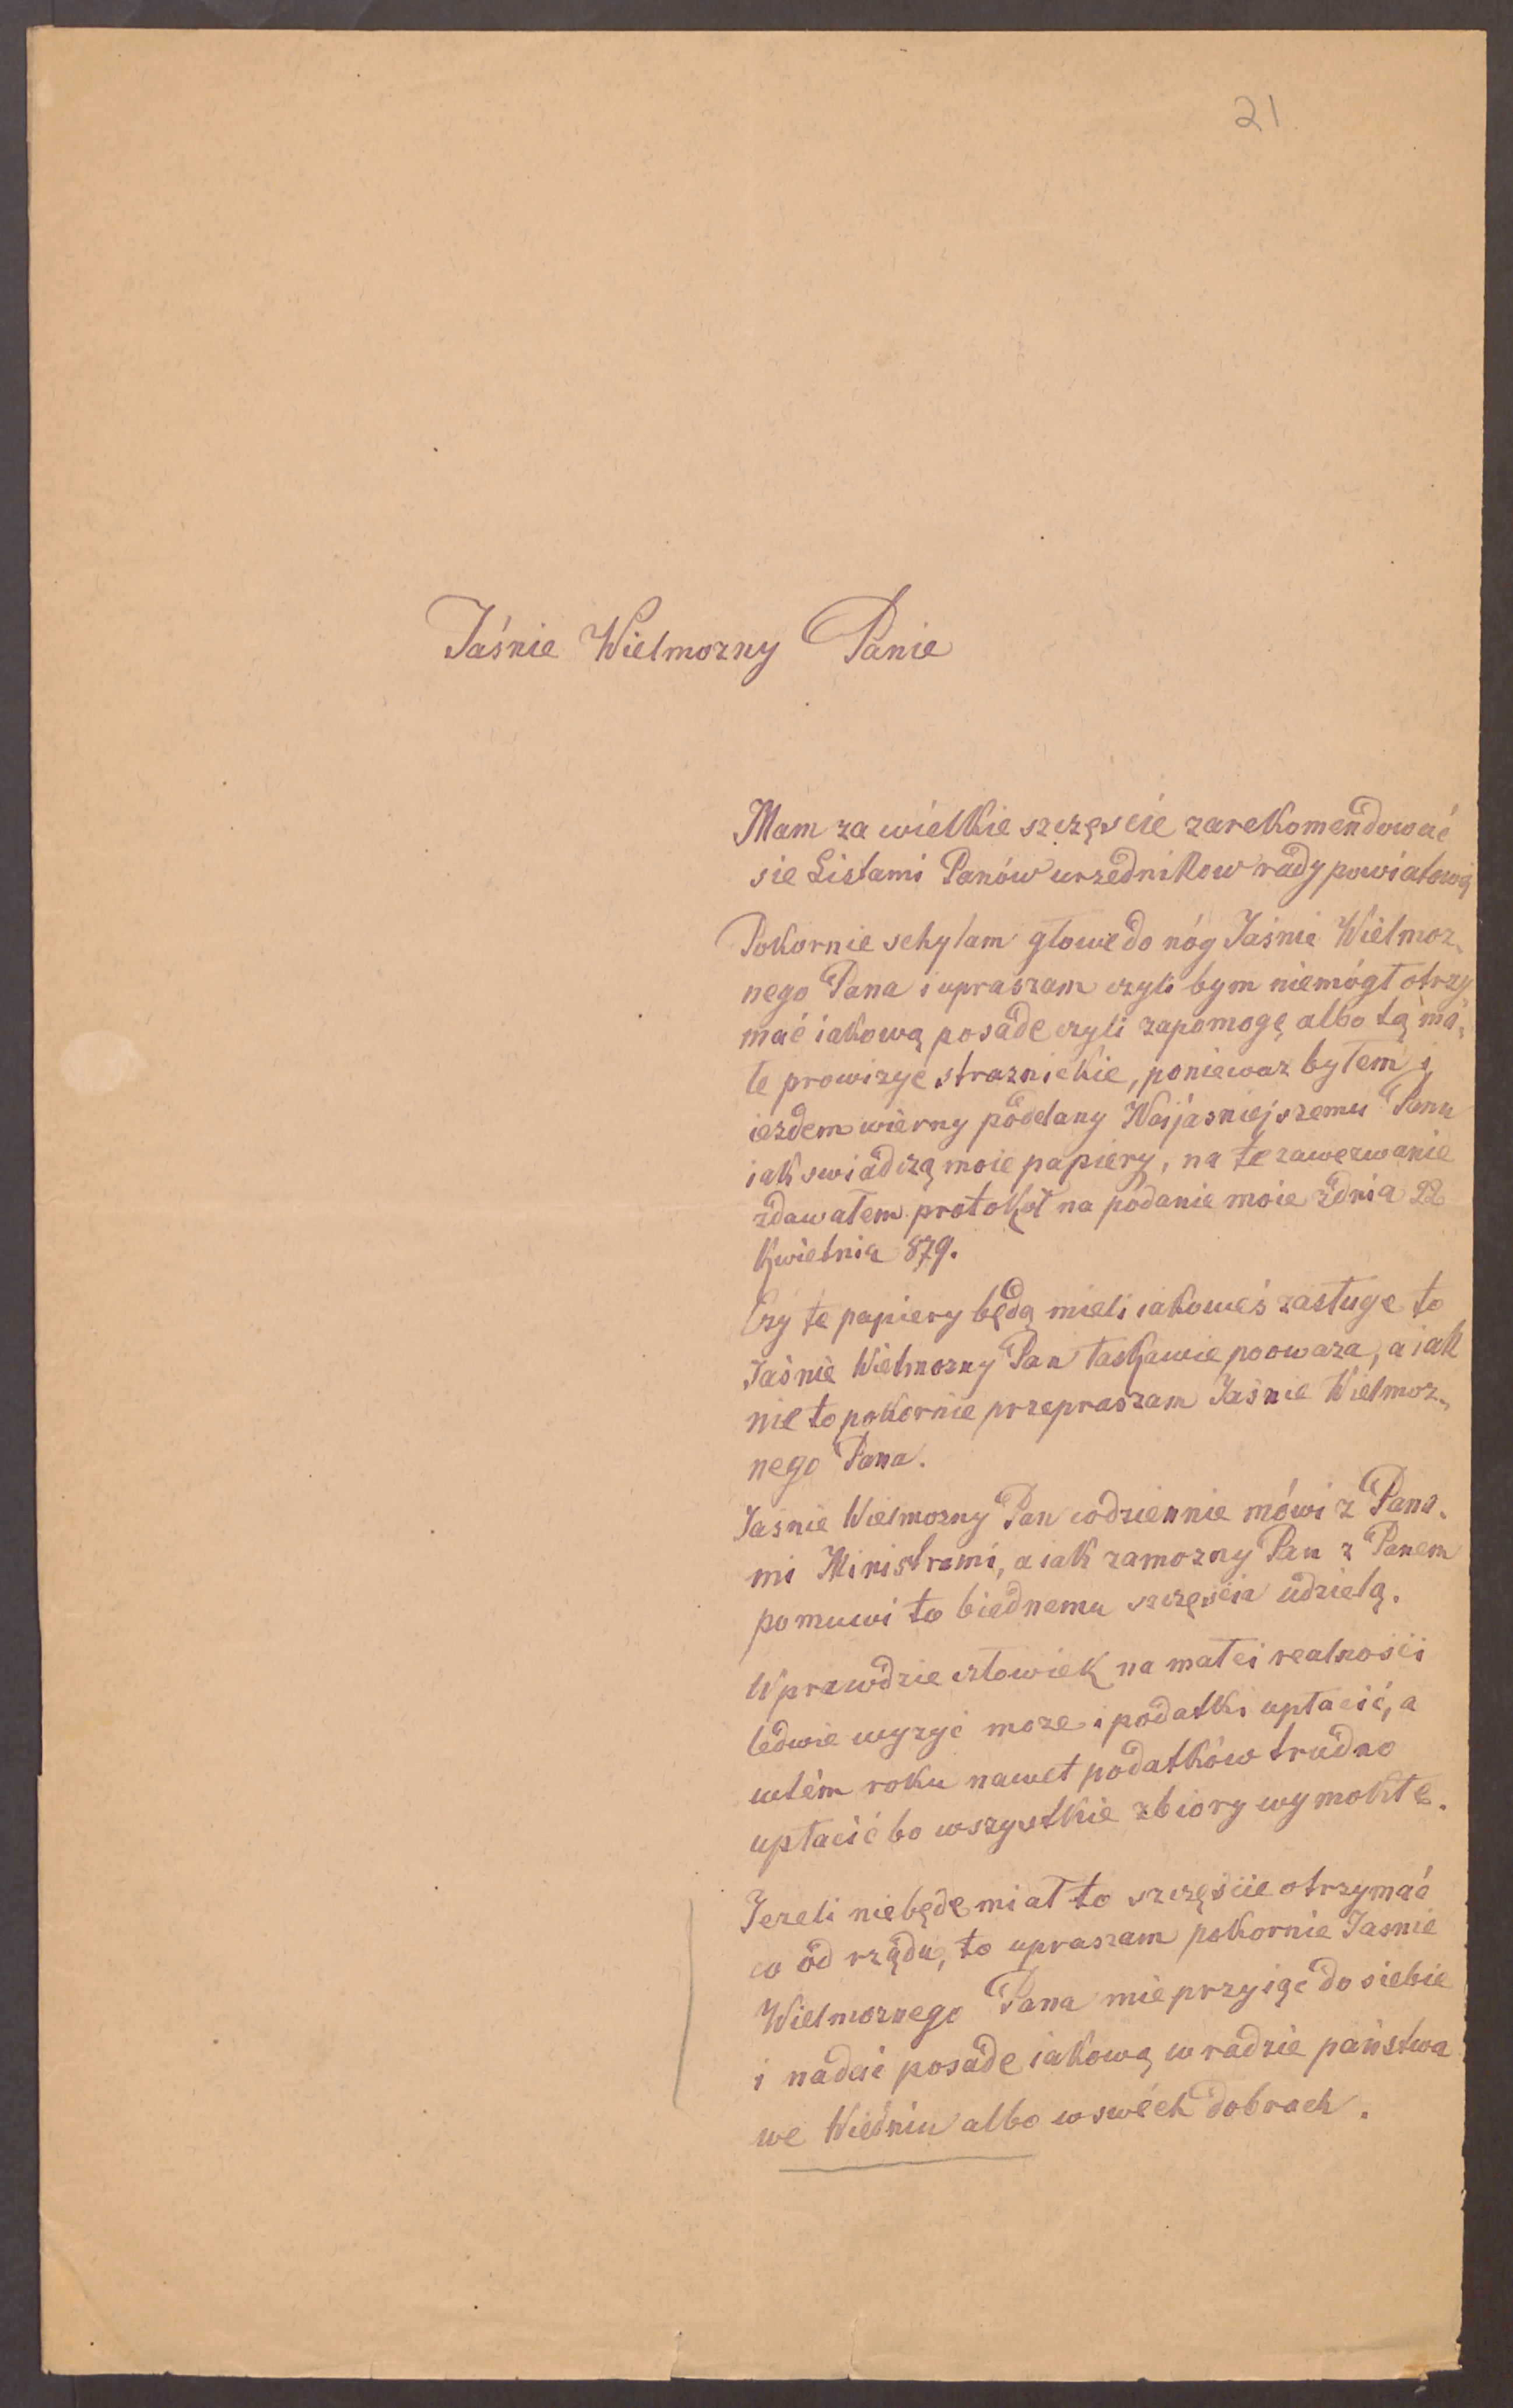 21
Jaśnie Wielmozny Panie
Mam za wielkie szczęscie zarekomendować
sie Listami Panów urzednikow rady powiatową
Pokornie schylam głowe do nóg Jaśnie Wielmoz-
nego Pana i upraszam czyli bym niemógł otrzy
mać iakową posade czyli zapomogę albo tą ma-
łe prowizye straznickie, poniewaz byłem i
iezdem wierny poddany Najjasniejszemu Panu
iak swiadczą moie papiery, na te zawezwanie
zdawałem protokół na podanie moie zdnia 22
Kwietnia 879.
Czy te papiery będą mieli iakoweś zasługe to
Jaśnie Wielmozny Pan łaskawie poowaza, a iak
nie to pokornie przepraszam Jaśnie Wielmoz-
nego Pana.
Jasnie Wielmozny Pan codziennie mówi z Pana-
mi Ministrami, a iak zamozny Pan z Panem
pomuwi to biednemu szczęscia udzielą.
Wprawdzie człowiek na małei realności
ledwie wyzyć moze i podatki upłacić, a
wtém roku nawet podatków trudno
upłacić bo wszystkie zbiory wymokłe.
Jezeli niebęde miał to szczęście otrzymać
co od rządu, to upraszam pokornie Jasnie
Wielmoznego Pana mie przyiąć do siebie
i nadać posade iakową w radzie państwa
we Wiedniu albo w swéch dobrach.